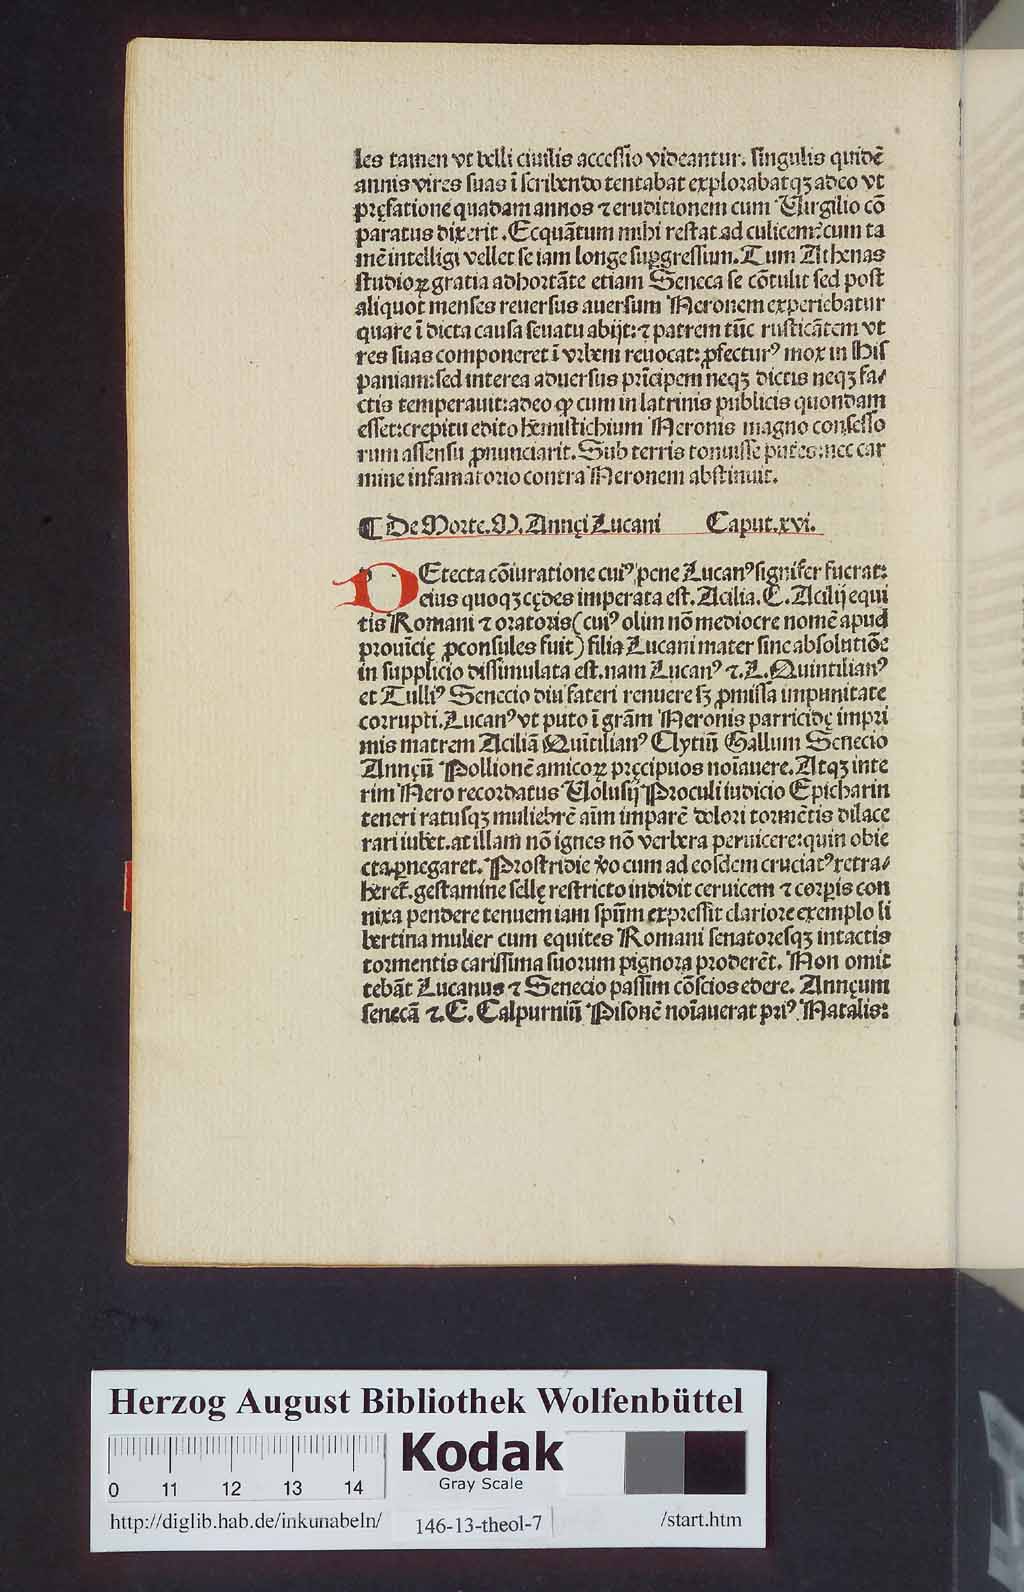 les tamen vt belli ciuilis accessio videantur. singulis quidē
annis vires suas ī scribendo tentabat explorabatqꝫ adeo vt
pręfatione quadam annos ⁊ eruditionem cum Virgilio cō
paratus dixerit. Ecquātum mihi restat ad culicem: cum ta
mē intelligi vellet se iam longe suꝑgressum. Tum Athenas
studioꝝ gratia adhortāte etiam Seneca se cōtulit sed post
aliquot menses reuersus auersum Neronem experiebatur
quare ī dicta causa seuatu abijt: ⁊ patrem tūc rusticātem vt
res suas componeret ī vrbem reuocat: ꝓfecturꝰ mox in His
paniam: sed interea aduersus prīcipem neqꝫ dictis neqꝫ fa/
ctis temperauit: adeo ꝙ cum in latrinis publicis quondam
esset: crepitu edito hemistichium Neronis magno consesso
rum assensu ꝓnunciarit. Sub terris tonuisse putes: nec car
mine infamatorio contra Neronem abstinuit.
¶ De Morte. M. Annęi Lucani Caput. xvi.
DEtecta cōiuratione cuiꝰ pene Lucanꝰ signifer fuerat:
eius quoqꝫ cędes imperata est. Acilia. C. Acilij equi
tis Romani ⁊ oratoris (cuiꝰ olim nō mediocre nomē apud
prouīcię ꝓconsules fuit) filia Lucani mater sine absolutiōe
in supplicio dissimulata est. nam Lucanꝰ ⁊. L. Quintilianꝰ
et Tulliꝰ Senecio diu fateri renuere sꝫ ꝓmissa impunitate
corrupti. Lucanꝰ vt puto ī grām Neronis parricidę impri
mis matrem Aciliā Quītilianꝰ Clytiū Gallum Senecio
Annęū Pollionē amicoꝝ pręcipuos noīauere. Atqꝫ inte
rim Nero recordatus Volusij Proculi iudicio Epicharin
teneri ratusqꝫ muliebrē aīm imparē dolori tormētis dilace
rari iubet. at illam nō ignes nō verbera peruicere: quin obie
cta ꝑnegaret. Prostridie ꝟo cum ad eosdem cruciatꝰ retra/
heret̄. gestamine sellę restricto indidit ceruicem ⁊ corꝑis con
nixa pendere tenuem iam spūm expressit clariore exemplo li
bertina mulier cum equites Romani senatoresqꝫ intactis
tormentis carissima suorum pignora proderēt. Non omit
tebāt Lucanus ⁊ Senecio passim cōscios edere. Annęum
senecā ⁊. C. Calpurniū Pisonē noīauerat priꝰ Natalis:
Herzog August Bibliothek Wolfenbüttel
0 11 12 13 14
Kodak
Gray Scale
http://diglib.hab.de/inkunabeln/ 146-13-theol-7 /start.htm